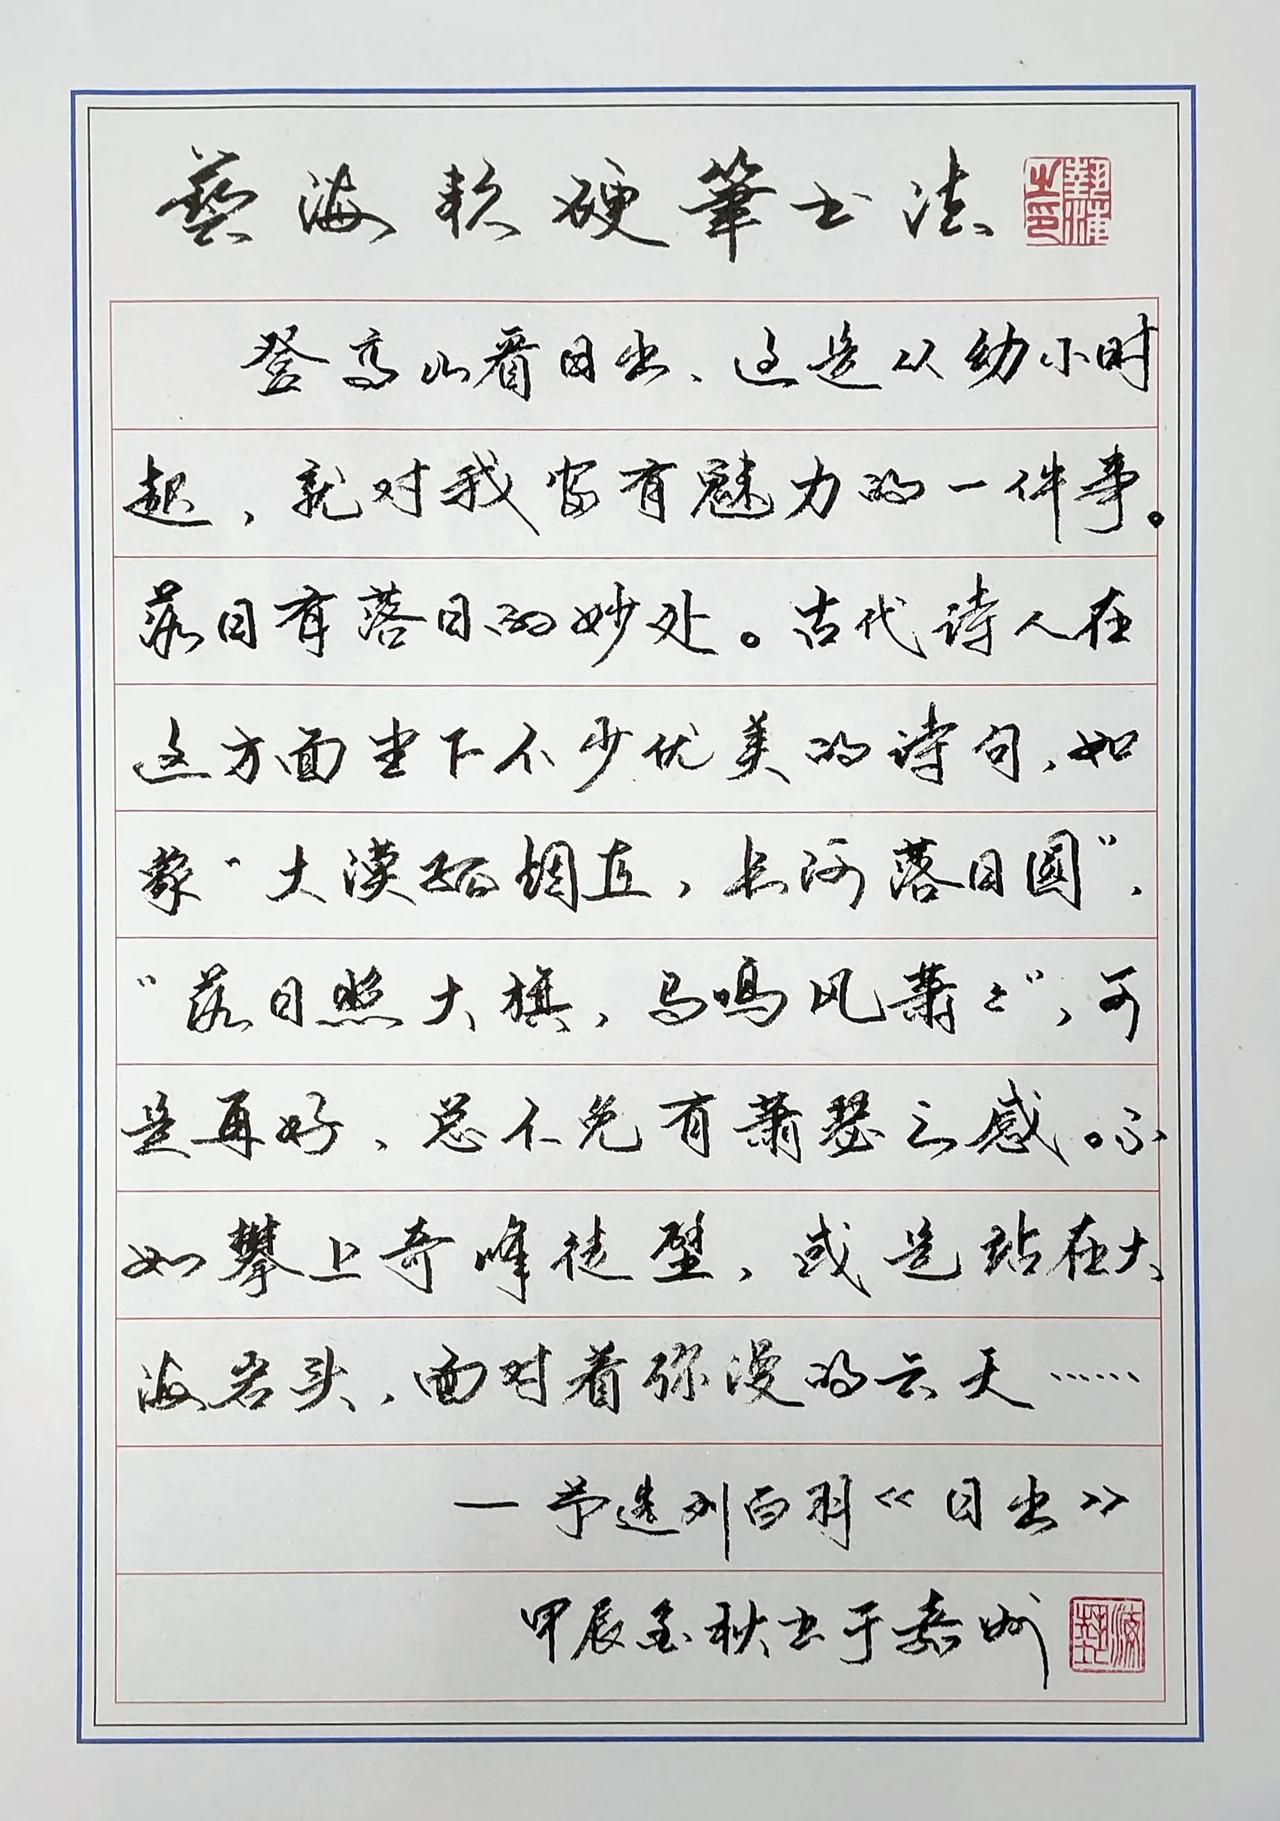 藝海软硬筆书法
登高山看日出、这是从幼小时
起，就对我富有魅力的一件事。
落日有落日的妙处。古代诗人在
这方面留下不少优美的诗句，如
象“大漠孤烟直，长河落日圆”，
“落日照大旗，马鸣风萧々”，可
是再好，总不免有萧瑟之感。不
如攀上奇峰陡壁，或是站在大
海岩头，面对着弥漫的云天……
—节选刘白羽《日出》
甲辰金秋书于嘉州